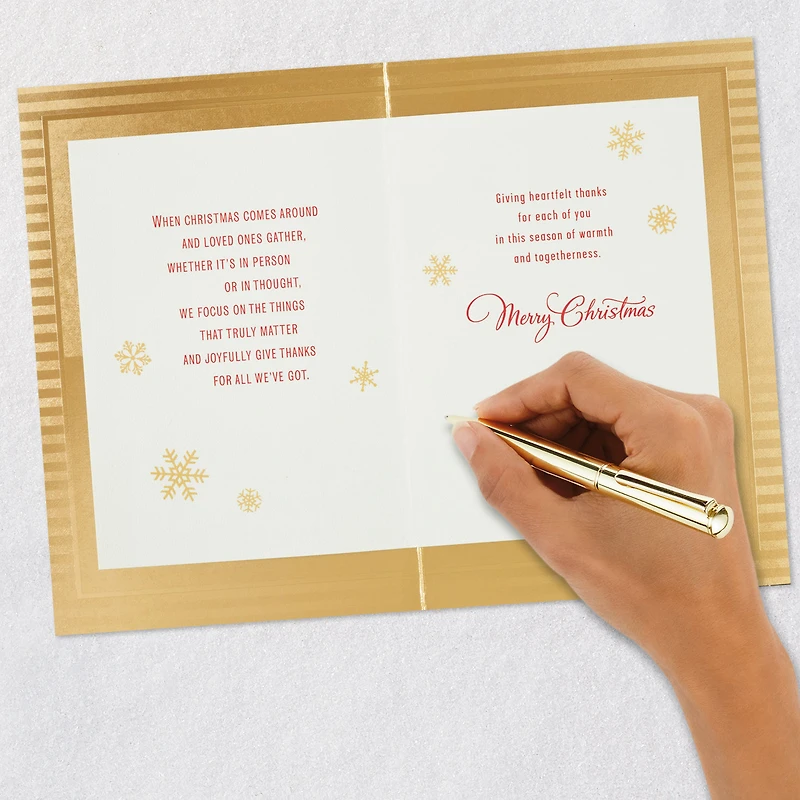 WHEN CHRISTMAS COMES AROUND
AND LOVED ONES GATHER,
WHETHER IT'S IN PERSON
OR IN THOUGHT,
WE FOCUS ON THE THINGS
THAT TRULY MATTER
AND JOYFULLY GIVE THANKS
FOR ALL WE'VE GOT.
Giving heartfelt thanks
for each of you
in this season of warmth
and togetherness.
Merry Christmas